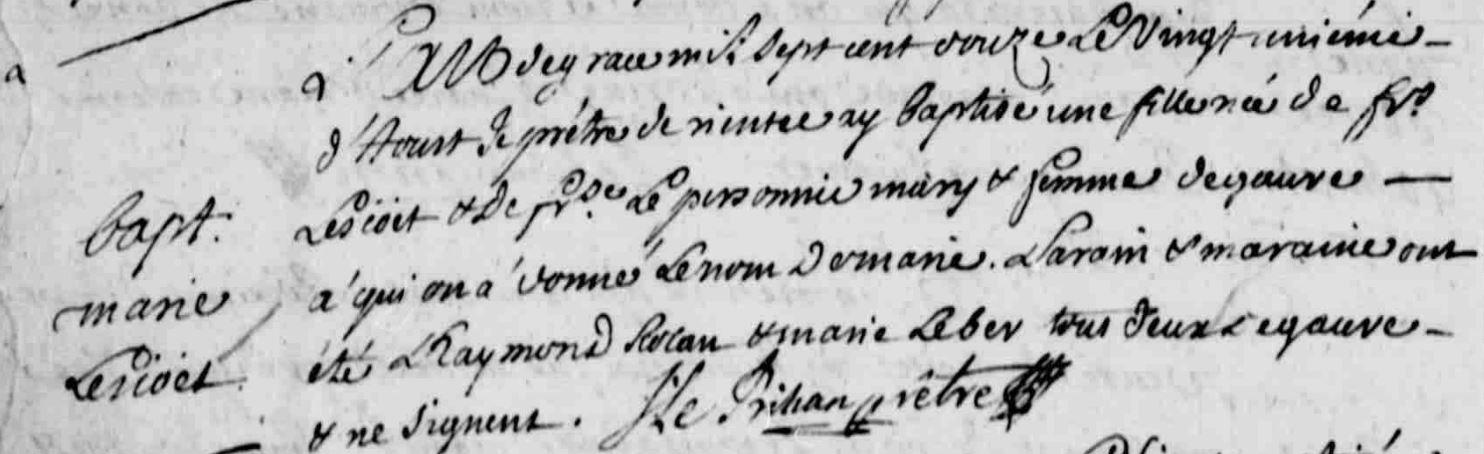 L'an de grace mil sept cent douze Le Vingt unième
d'Aoust Je prêtre de ay baptisé une fille née de fr.s
Lescoët & de fr.se Le personnic mary & femme degavre
bapt. à qui on a donné Le nom De marie. Parain & maraine ont
marie été Raymond & marie Le ber tous deux de gavre
Lescoët. & ne signent. Le prêtre